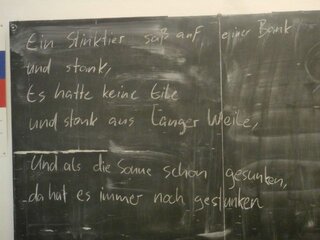 Ein Stinktier saß auf einer Bank
und stank,
Es hatte keine Eile
und stank aus langer Weile,
Und als die Sonne schon gesunken,
da hat es immer noch gestunken